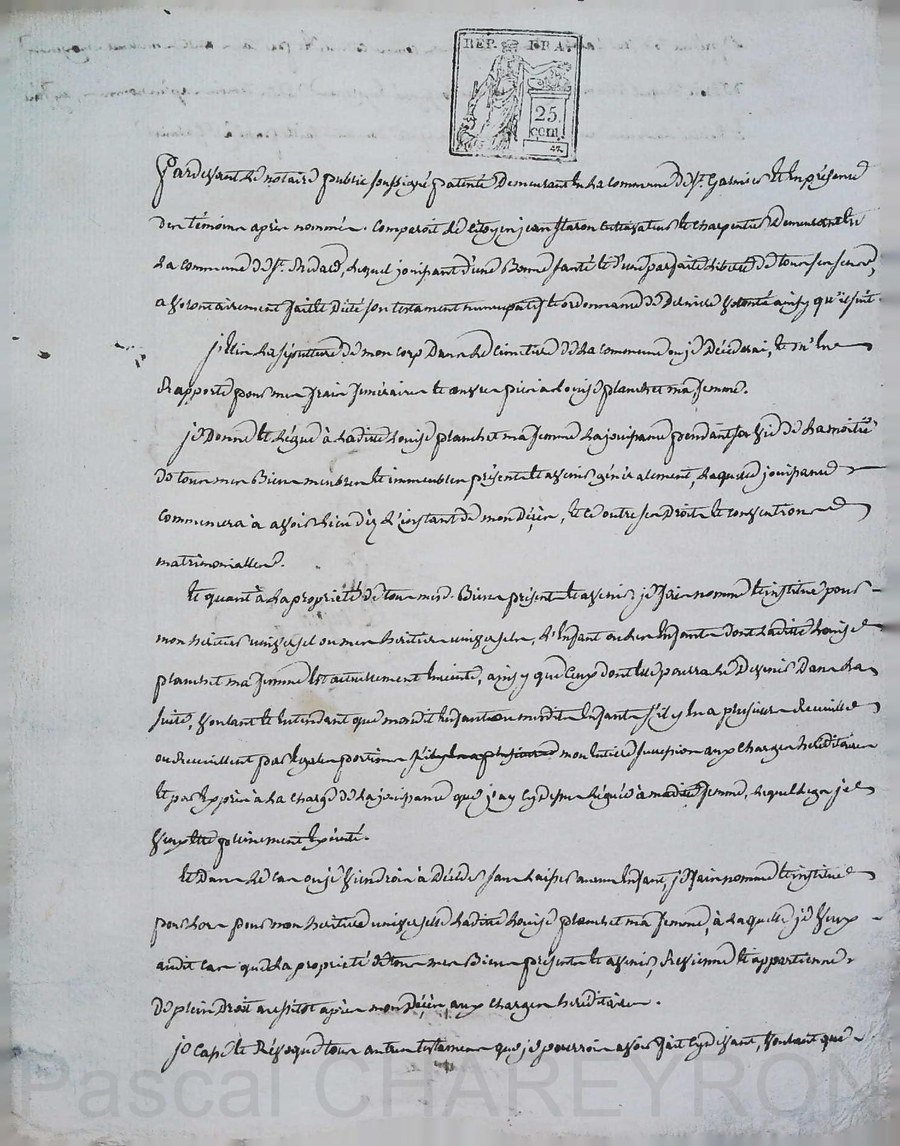 REP. FRA.
25
cent.
Pardevant le notaire public soussigné patenté demeurant en la commune de St. et en présence
des témoins après nommés. comparoit le citoyen jean cultivateur et charpentier demeurant en
la commune de St. Medard, lequel jouissant d'une bonne santé et d'une parfaite liberté de tous ses sens,
a volontairement fait et dicté son testament nuncupatif et ordonnance de derniere volonté ainsy qu'il suit.
j'élis la sépulture de mon corp dans le cimetiere de la commune ou je décéderai, et m'en
rapporte pour mes frais funéraires et œuvres pies à Louise planchet ma femme.
je donne et légue à ladite Louise planchet ma femme la jouissance pendant sa vie de la moitié
de tous mes biens meubles et immeubles présents et avenir généralement, laquelle jouissance
commencera à avoir lieu dèz l'instant de mon décès, et ce outre ses droits et conventions
matrimonialles.
et quant à la propriété de tous mesd. biens présents et avenir je fais nomme et institue pour
mon heritier universel ou mes heritiers universels, l'enfant ou les enfants dont ladite Louise
planchet ma femme est actuellement enceinte, ainsy que ceux dont elle pourra le devenir dans la
suite, voulant et entendant que mondit enfant ou mesdits enfants s'il y en a plusieurs recueille
ou recueillent par egales portions s'il y en a plusieurs mon entiere succession aux charges héréditaires
et par exprès à la charge de la jouissance que j'ay cydessus léguée à madite femme, lequel legs je
veux etre pleinement exécuté.
et dans le cas ou je viendrois à décéder sans laisser aucun enfant, je fais nomme et institue
pour lors pour mon heritiere universelle ladite Louise planchet ma femme, à laquelle je veux
audit cas que la propriété de tous mes biens présents et avenir, revienne et appartienne
de plein droit aussitot après mon décès aux charges hereditaires.
je casse et révoque tous autres testaments que je pourrois avoir fait cydevant, voulant que
Pascal CHAREYRON